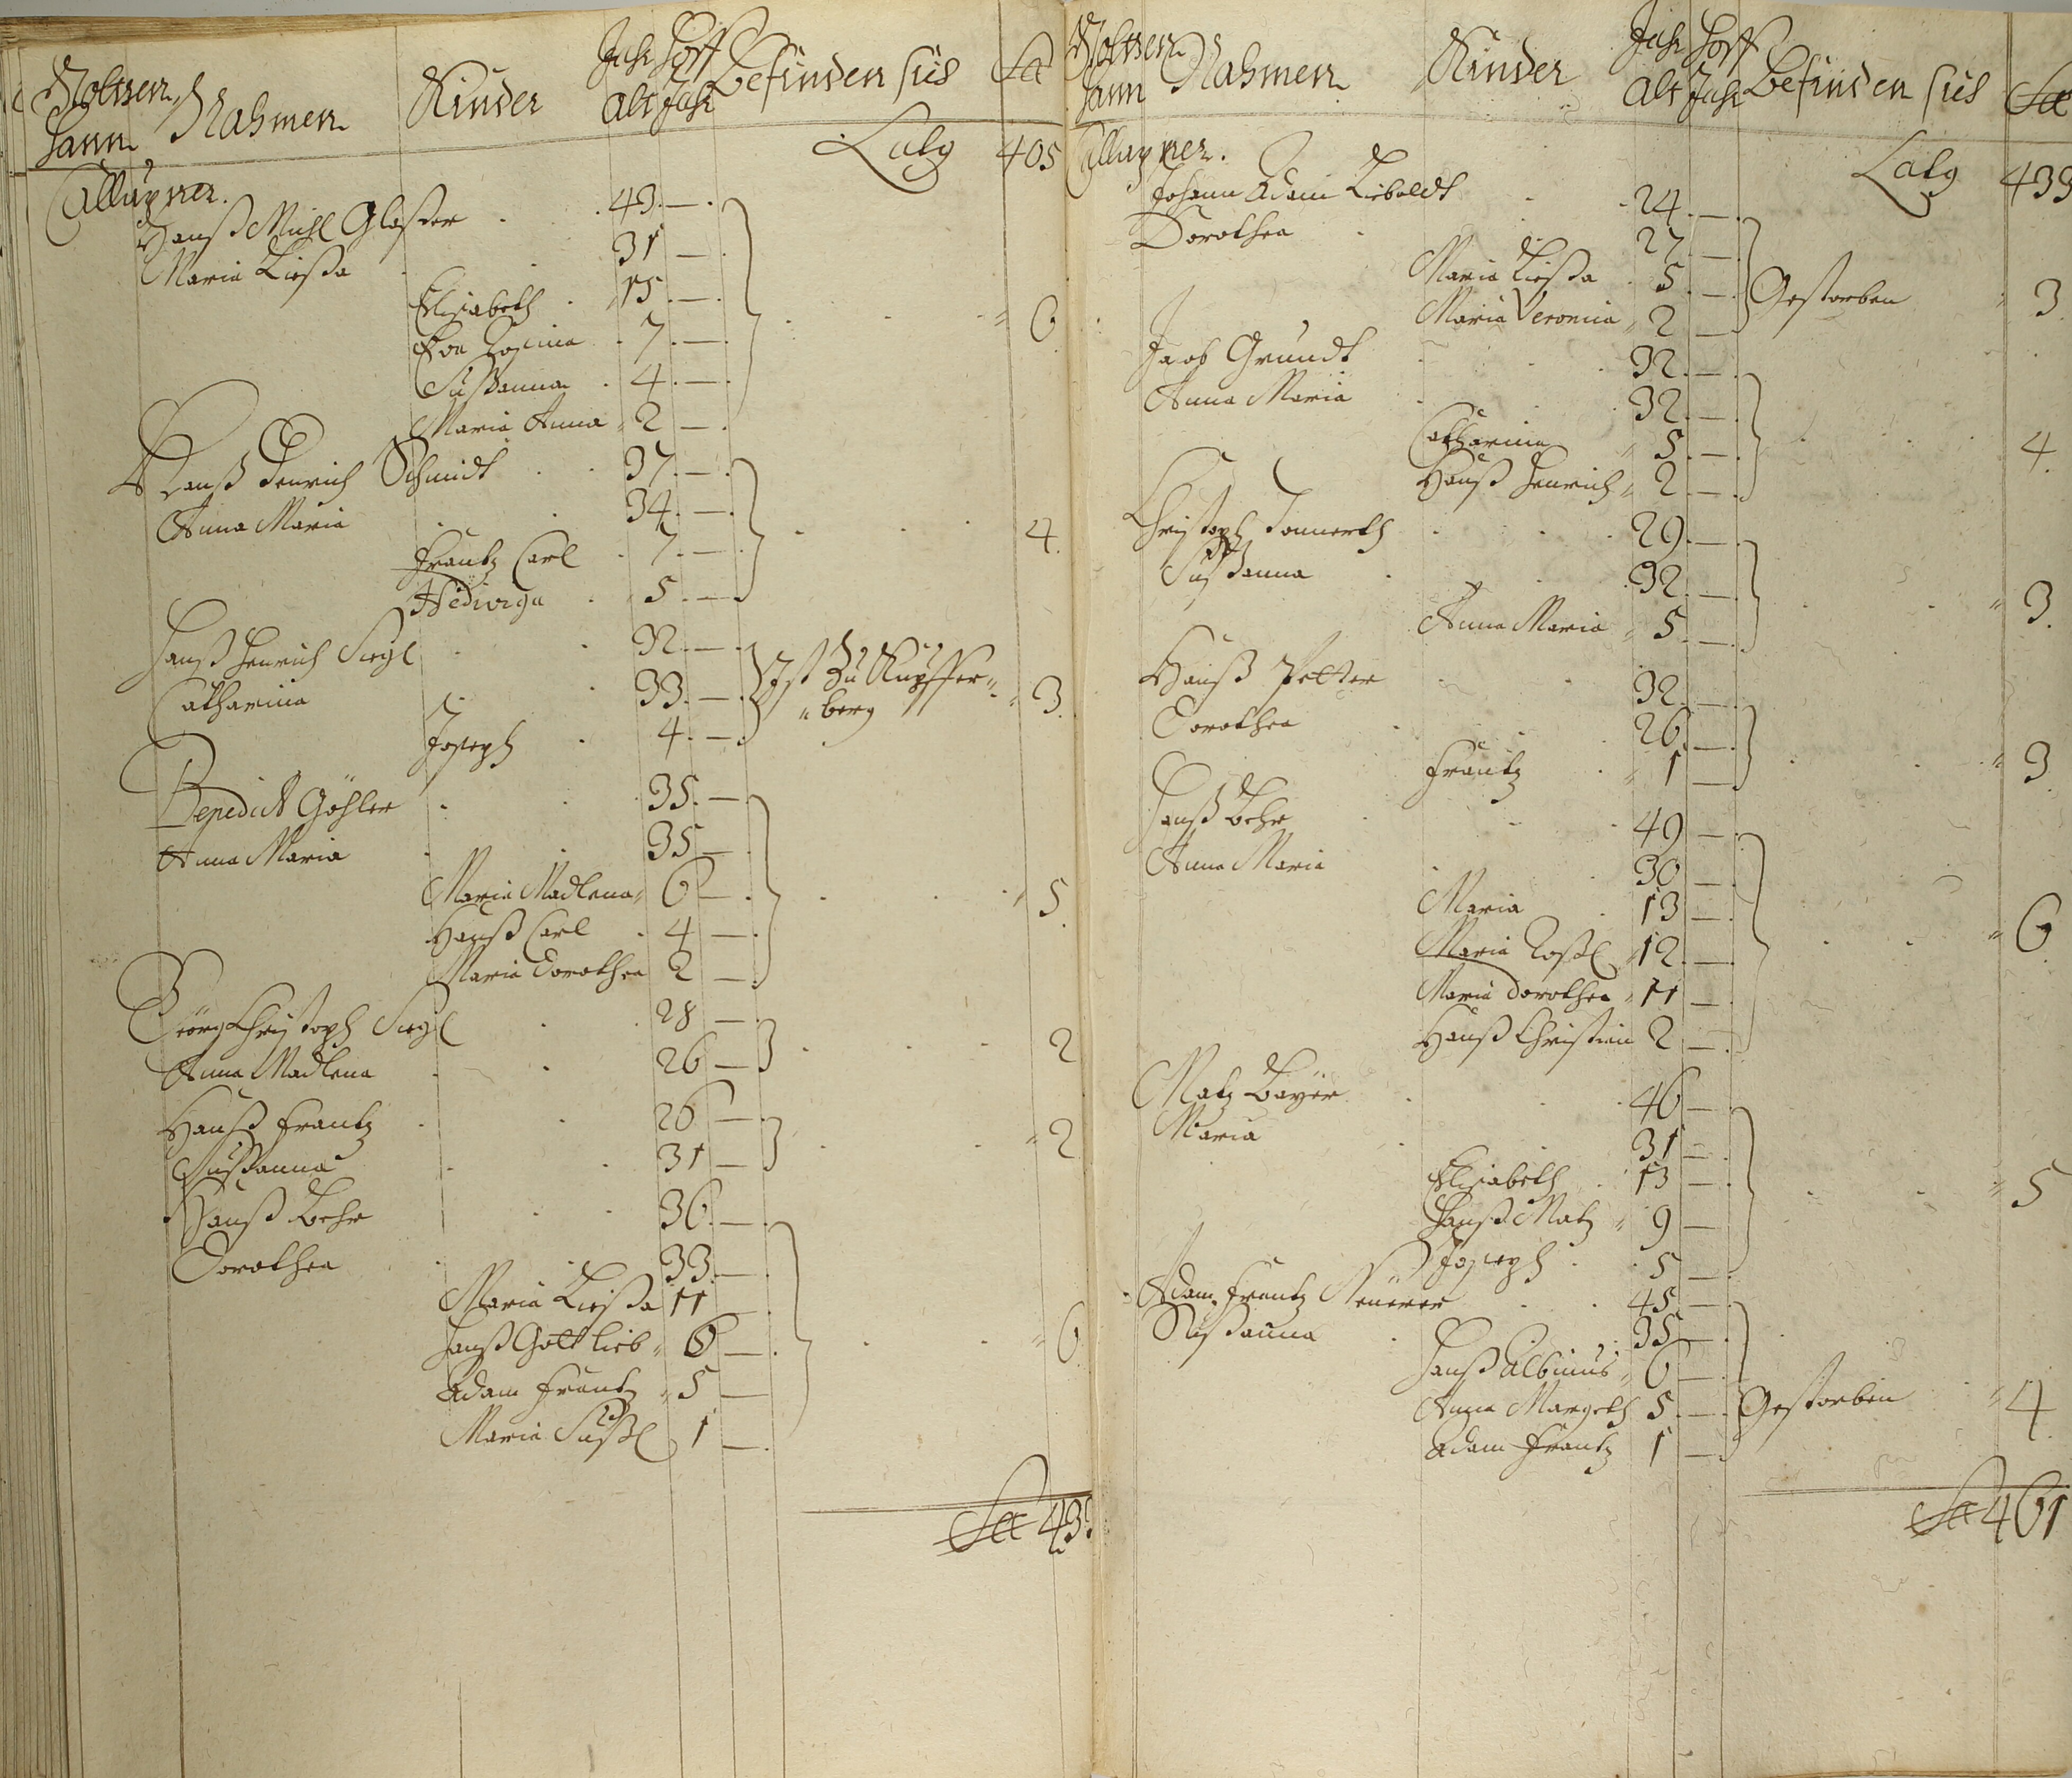 Nahmen Kinder Jahr Alt Hoff Jahr Befinden sich Sa
Latg 405
Hanß Michl Glaßer 43 —
MariaLießa 31 —
Elisabeth 15 —
Eva Rosina 7 — 6
Sußanna 4 —
Maria Anna 2 —
Hanß Henrich Schmidt 37 —
Anna Maria 34 — 4
Frantz Carl 7 —
Hedwiga 5 —
Hanß Henrich Siegl 32 —
Catharina 33 — Ist Zu Kupffer- 3
berg
Joseph 4 —
Benedict Göhler 35 —
Anna Maria 35 —
Maria Madlena 6 — 5
Hanß Carl 4 —
Maria Dorothea 2 —
Georg Christoph Siegl 28 —
Anna Madlena 26 — 2
Hanß Frantz 26 —
Sußanna 31 — 2
Hanß Behr 36 —
Dorothea 33 —
MariaLießa 11 —
Hanß Gottlieb 6 — 6
Adam Frantz 5 —
Maria Sußl 1 —
Sa 439
Nahmen Kinder Jahr Alt Hoff Jahr Befinden sich Sa
Latg 439
Johann Adam Lieboldt 24 —
Dorothea 27 —
MariaLießa 5 — Gestorben 3
Maria Veronica 2 —
Jacob Grundt 32 —
Anna Maria 32 —
Catharina 5 — 4
Hanß Henrich 2 —
Christoph Donnerth 29 —
Sußanna 32 — 3
Anna Maria 5 —
Hanß Petter 32 —
Dorothea 26 —
Frantz 1 — 3
Hanß Behr 49 —
Anna Maria 30 —
Maria 13 —
Maria Roßl 12 — 6
Maria Dorothea 11 —
Hanß Christian 2 —
Matz Bayer 46 —
Maria 31 —
Elisabeth 13 — 5
Hanß Matz 9 —
Joseph 5 —
Adam Frantz Neuerer 45 —
Sußanna 35 —
Hanß Albinus 6 —
Anna Margeth 5 — Gestorben 4
Adam Frantz 1 —
Sa 461